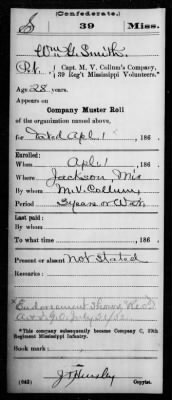 (Confederate.)
S 39 Miss.
Wm G. Smith
Pvt., Capt. M. V. Collum's Company,
39 Reg't Mississippi Volunteers.*
Age 28 years.
Appears on
Company Muster Roll
of the organization named above,
for dated Apl. 1, 186 .
Enrolled:
When Apl. 1, 186 .
Where Jackson, Mis
By whom M. V. Collum,
Period 3 years or War,
Last paid:
By whom
To what time , 186 .
Present or absent Not Stated
Remarks:
*Endorsement Shows Rec'd
A. & I. G. O. July 31/62
*This company subsequently became Company C, 39th
Regiment Mississippi Infantry.
Book mark:
(642) Copyist.